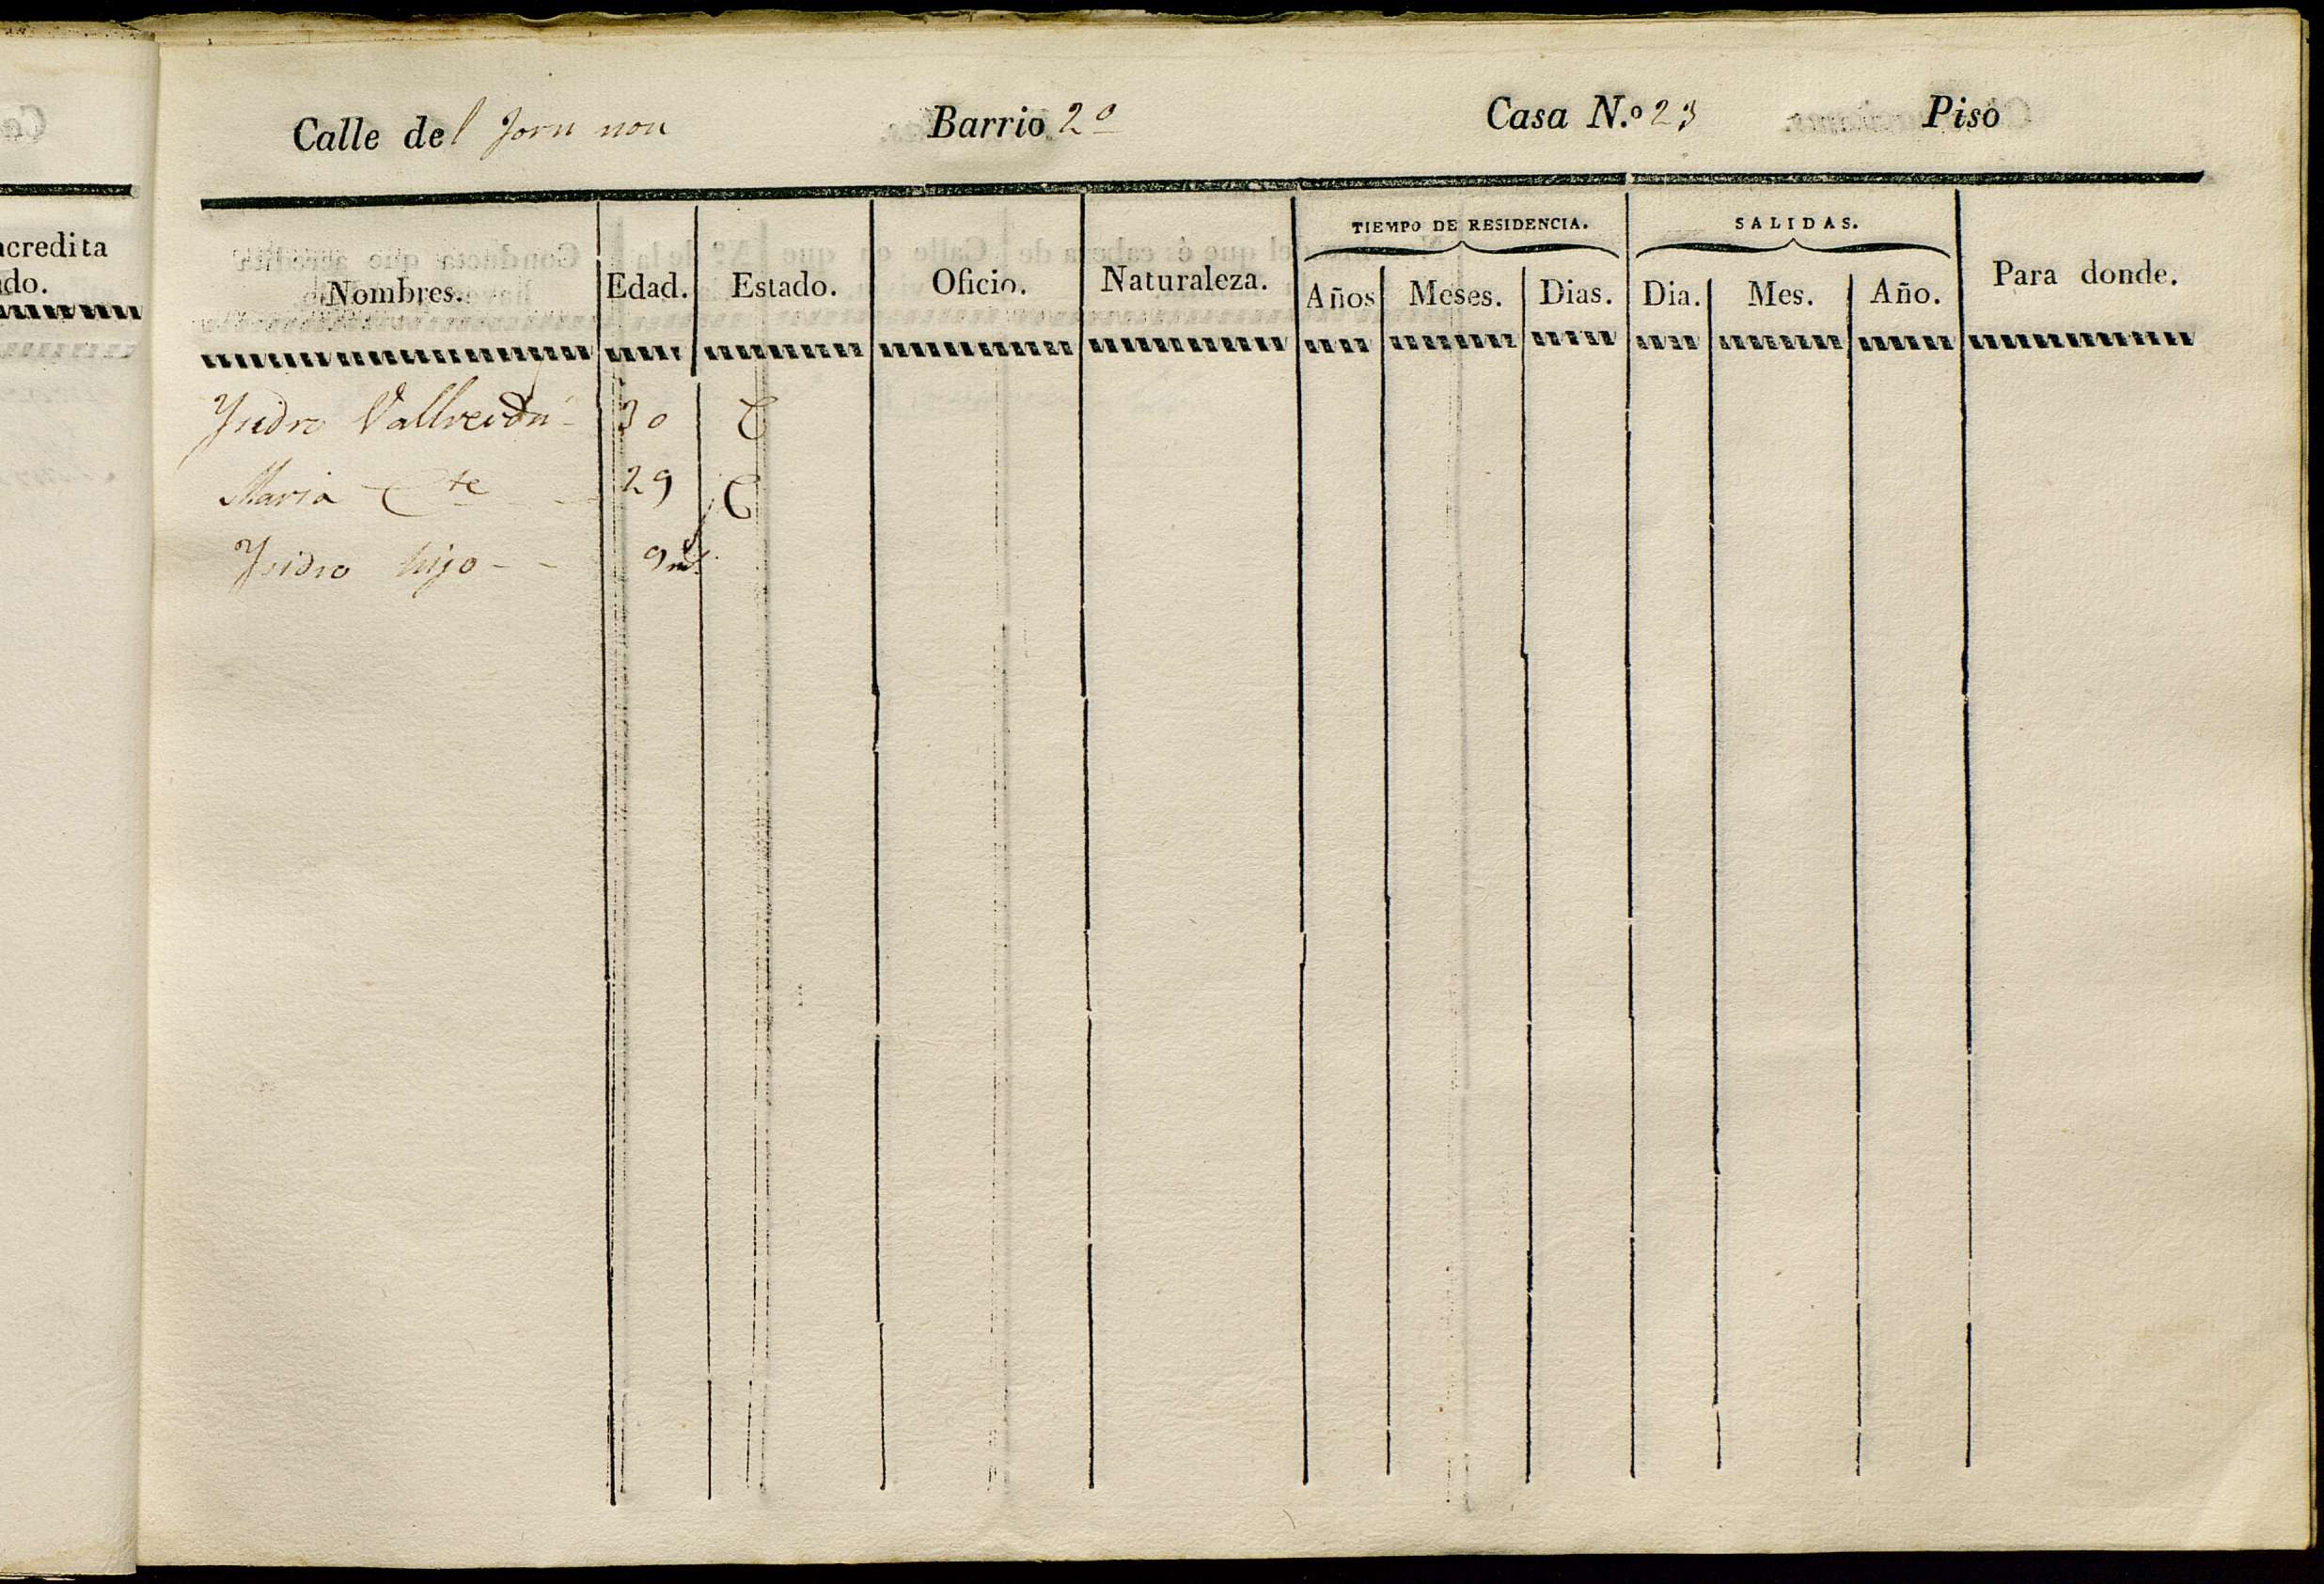 Calle del forn nou Barrio 2º Casa N.º 23 Piso
TIEMPO DE RESIDENCIA. SALIDAS.
Nombres. Edad. Estado. Oficio. Naturaleza. Años Meses. Dias. Dia. Mes. Año. Para donde.
Ysidro Vallverdú - 30 C
Maria Cte - 29 C
Ysidro hijo - - 9 ms.
acredita
do.